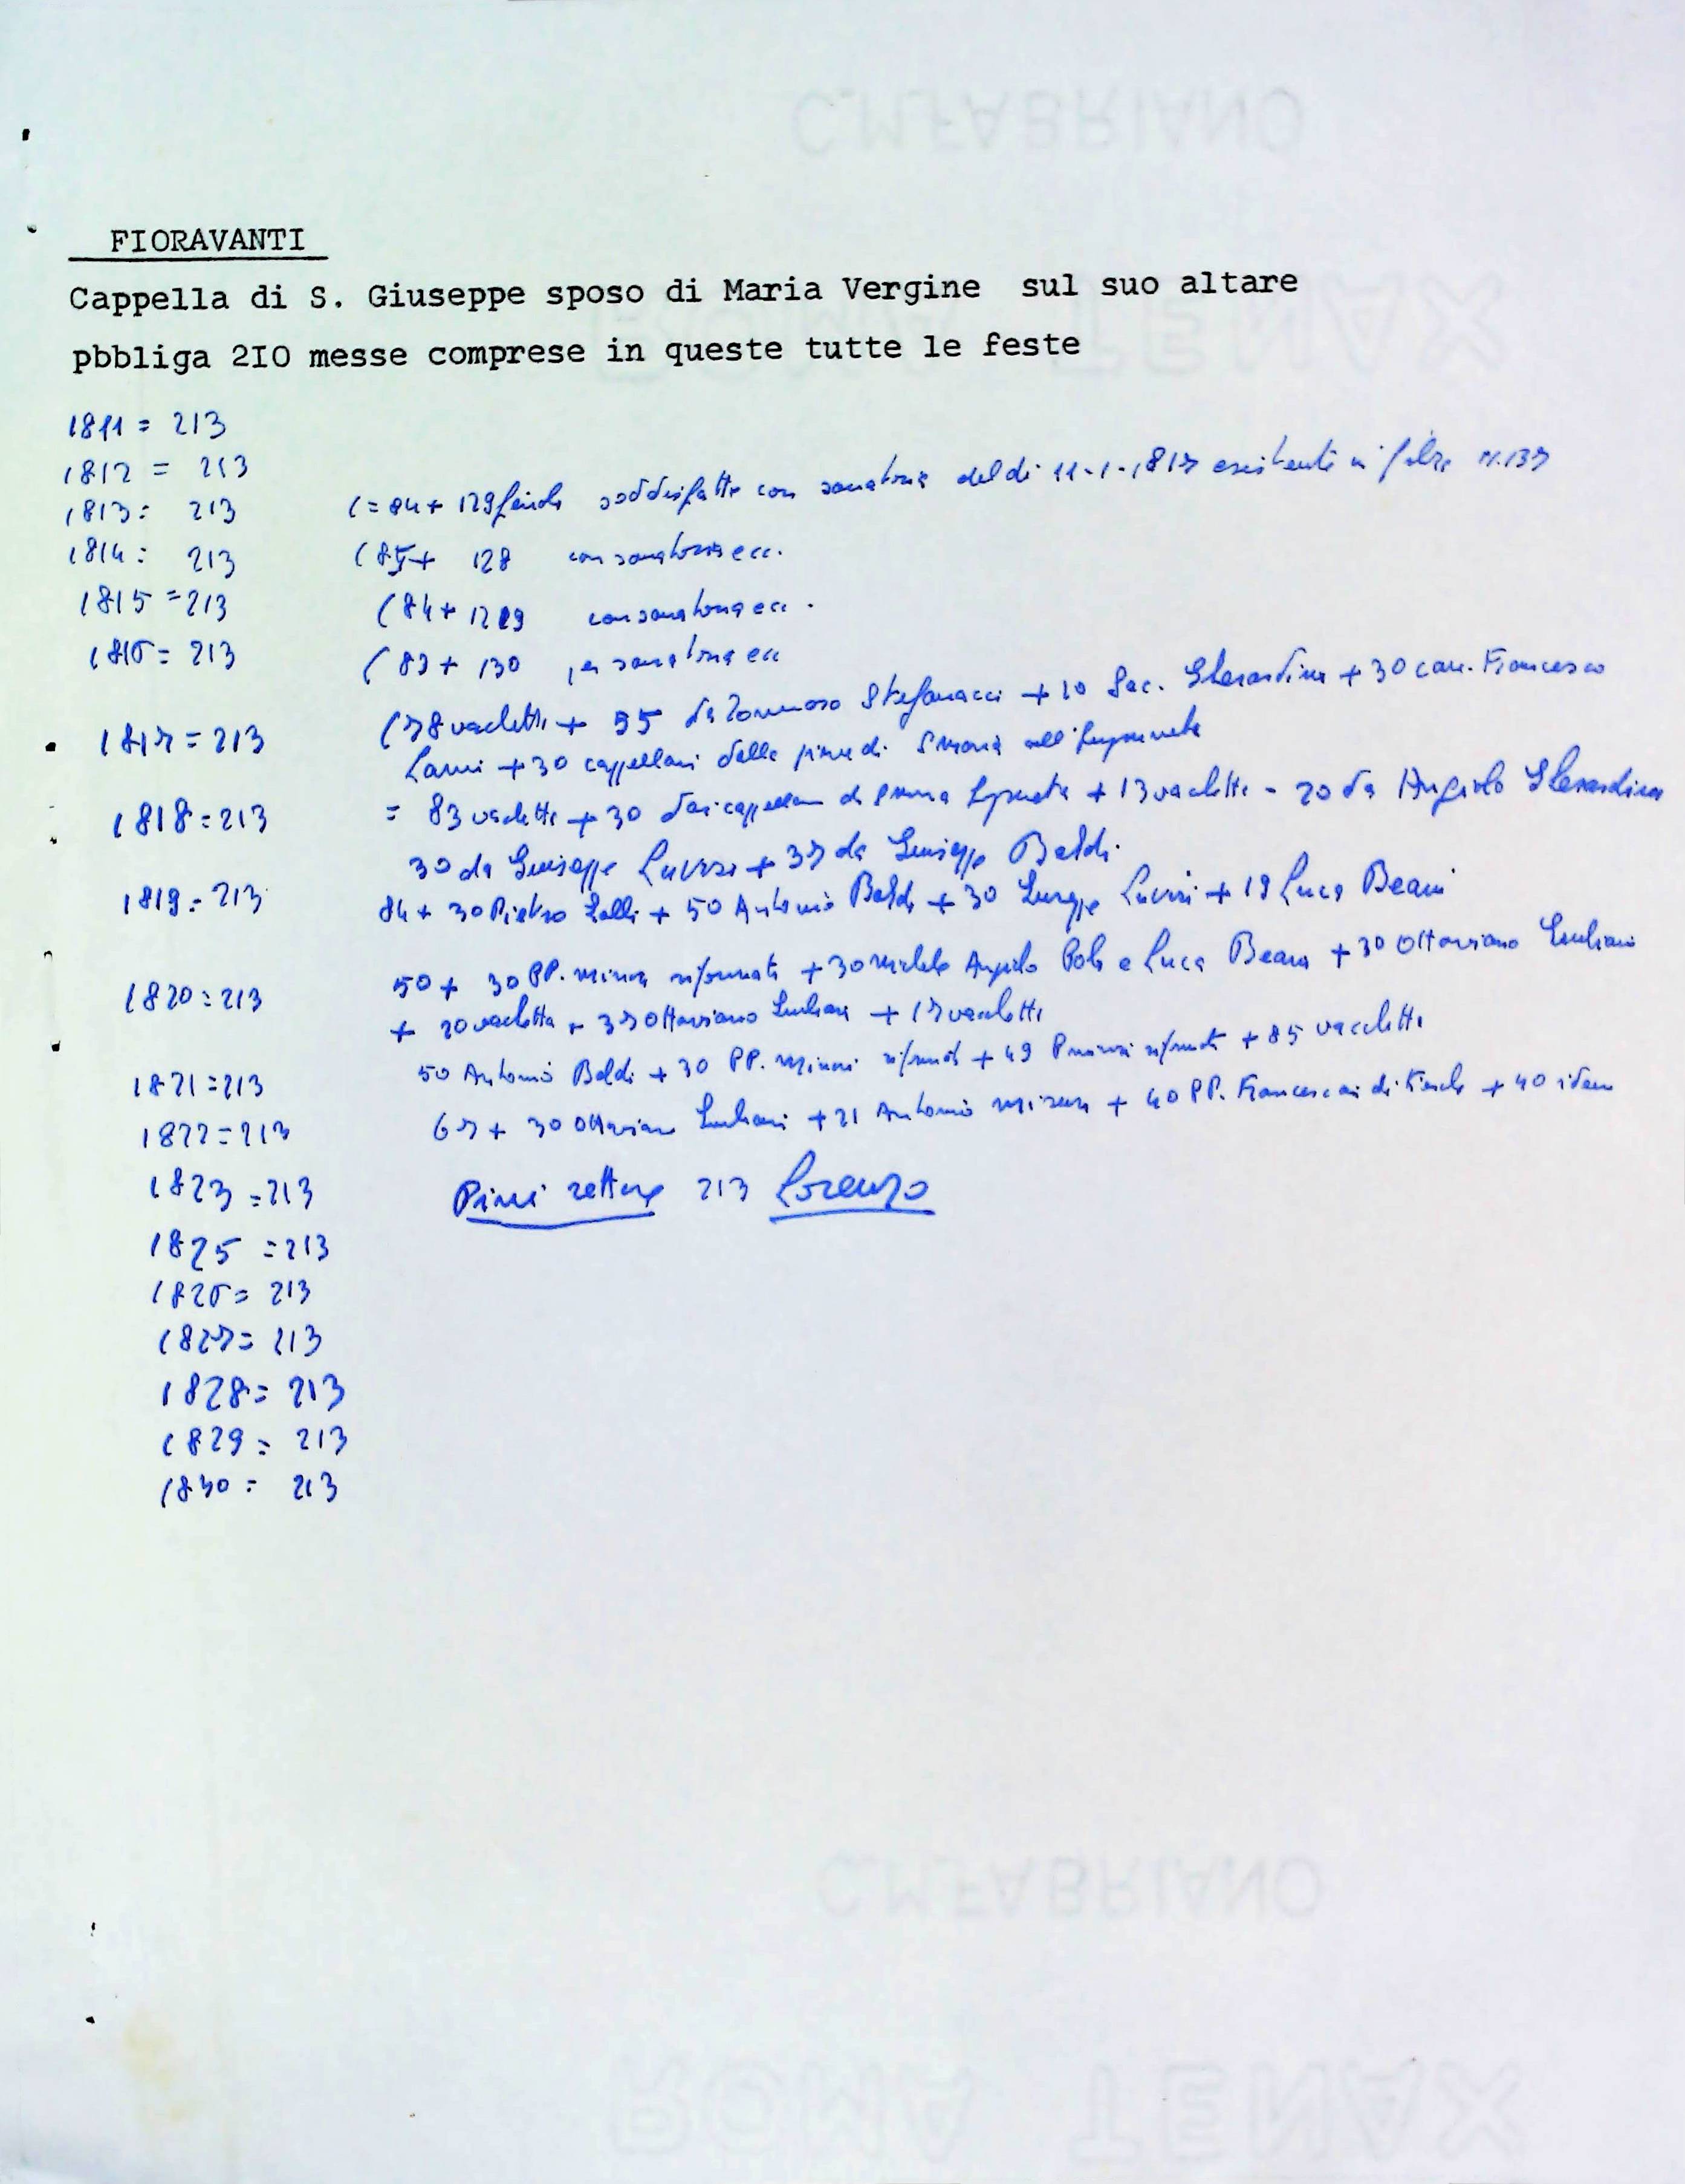 C.M.FABRIANO
FIORAVANTI
ROMA TENAX
Cappella di S. Giuseppe sposo di Maria Vergine sul suo altare
pbbliga 2I0 messe comprese in queste tutte le feste
1811 = 213
1812 = 213
1813 = 213 (= 84 + 129 soddisfatte con sanatoria del di 11-1-1817 esistenti in filza n. 137
1814 = 213 (85 + 128 con sanatoria ecc.
1815 = 213 (84 + 129 con sanatoria ecc.
1816 = 213 (83 + 130 per sanatoria ecc
1817 = 213 (78 vacchetta + 55 da Tommaso Stefanacci + 20 Sac. Gherardini + 30 can. Francesco
Lami + 30 cappellani della pieve di S Maria all'Impruneta
1818 = 213 = 83 vacchetta + 30 dai cappellani di + 13 vacchetta - 20 da Angiolo Gherardini
30 da Giuseppe + 37 da Giuseppe Baldi.
1819 = 213 84 + 30 Pietro Lalli + 50 Antonio Baldi + 30 Giuseppe + 19 Luca Beani
1820 = 213 50 + 30 PP. Minori riformati + 30 Michele Angiolo Poli e Luca Beani + 30 Ottaviano Giuliani
+ 20 vacchetta + 37 Ottaviano Giuliani + 17 vacchetta
1821 = 213 50 Antonio Baldi + 30 PP. Minori riformati + 49 riformati + 85 vacchetta
1822 = 213 67 + 30 Ottaviano Giuliani + 21 Antonio + 40 PP. Francescani di + 40 idem
1823 = 213 Pini rettore 213 Lorenzo
1825 = 213
1826 = 213
1827 = 213
1828 = 213
1829 = 213
1830 = 213
C.M.FABRIANO
ROMA TENAX